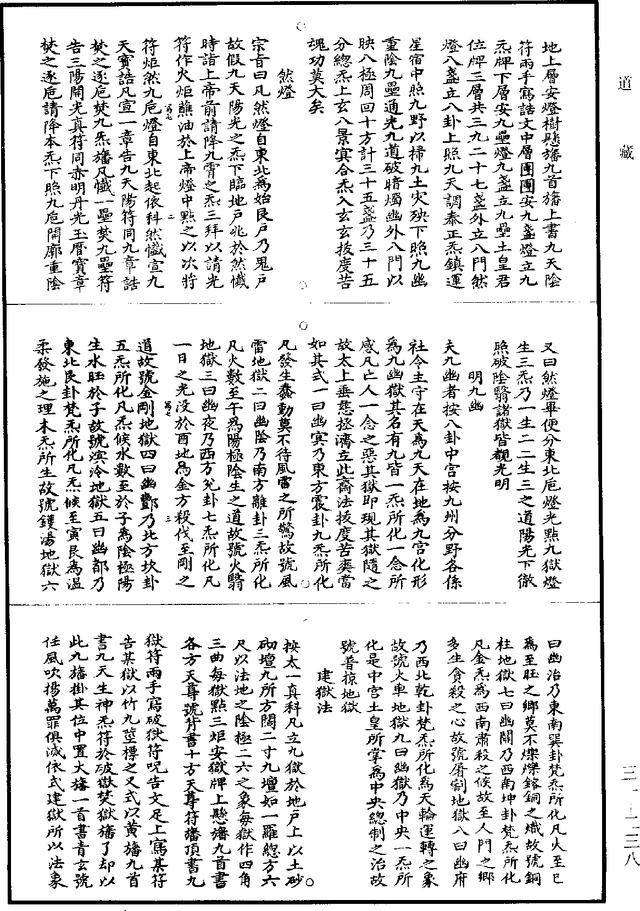 道藏
地上層安燈樹懸旛九首旛上書九天陰
符兩手寫誥文中層團團安九盞燈立九
炁牌下層安九壘燈九盞立九壘土皇君
位牌二層共三九二十七盞外立八門然
燈八盞立八卦上照九天調泰正炁鎮運
星宿中照九野以掃九土灾殃下照九幽
重陰九壘通光九道破暗燭幽外八門以
映八極周回十方計三十五盞乃三十五
分總炁上玄八景冥合炁入玄玄拔度苦
魂功莫大矣
然燈
宗旨曰凡然燈自東北為始艮戶乃鬼戶
故假九天陽光之炁下臨地戶兆於然懺
時誥上帝前請降九霄之炁三拜以請光
符作火炬蘸油於上帝燈中點之以次將
符炬然九巵燈自東北起依科然懺宣九
天寶誥凡宣一章告九天陽符同九章誥
焚之逐巵焚九炁旛凡懺一壘焚九壘符
告三陽開光真符同赤明丹光玉曆寶章
焚之逐巵請降本炁下照九巵開廓重陰
又曰然燈畢便分東北巵燈光點九獄燈
生三炁乃一生二二生三之道陽光下徹
照破陰翳諸獄皆觀光明
明九幽
夫九幽者按八卦中宮按九州分野各係
社令主守在天為九天在地為九宮化形
為九幽獄其名有九皆一炁所化一念所
感凡亡人一念之惡其獄即現其獄隨之
故太上垂慈拯濟立此齋法拔度苦爽當
如其式一曰幽冥乃東方震卦九炁所化
凡發生蠢動莫不待風雷之所驚故號風
雷地獄二曰幽陰乃南方離卦三炁所化
凡火數至午為陽極陰生之道故號火翳
地獄三曰幽夜乃西方兌卦七炁所化凡
一日之光沒於酉地為金方殺伐至剛之
道故號金剛地獄四曰幽酆乃北方坎卦
五炁所化凡炁候水數至於子為陰極陽
生水旺於子故號溟泠地獄五曰幽都乃
東北艮卦梵炁所化凡炁候至寅艮為溫
柔發施之理本炁所生故號鑊湯地獄六
曰幽治乃東南巽卦梵炁所化凡火至巳
為至旺之鄉莫不爍爍鎔銅之熾故號銅
柱地獄七曰幽關乃西南坤卦梵炁所化
凡金炁為西南肅殺之候故至人門之鄉
多生貪殺之心故號屠割地獄八曰幽府
乃西北乾卦梵炁所化為天輪運轉之象
故號火車地獄九曰幽獄乃中央一炁所
化是中宮土皇所掌為中央總制之治故
號普掠地獄
建獄法
按太一真科凡立九獄於地戶上以土砂
砌壇九所方闊二寸九壇如一羅總方六
尺以法地之陰極二六之象每獄作四角
三曲每獄點三炬安獄牌上懸旛九首書
各方天尊號背書十方天尊符旛頂書九
獄符兩手寫破獄符呪告文足上寫某符
告某獄以竹九莖標之又式以黃旛九首
書九天生神炁符於破獄焚獄旛了却以
此九旛掛其位中置大旛一首書青玄號
任風吹揚萬罪俱滅依式建獄所以法象
三一—二三八